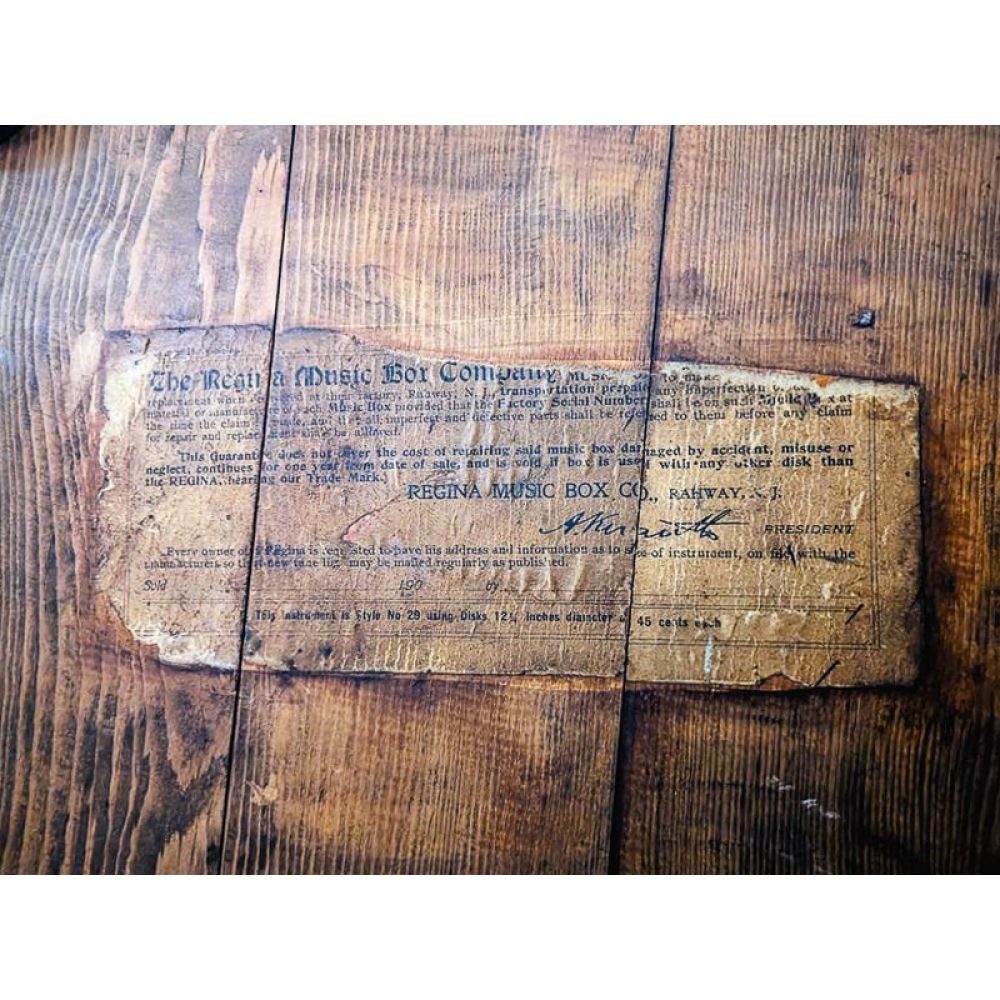 The Regina Music Box Company to make
replacement when returned at their factory, Rahway, N. J., transportation prepaid any imperfection
material or manufacture of such Music Box provided that the Factory Serial Number shall be on such Music Box at
the time the claim is made, and that all imperfect and defective parts shall be referred to them before any claim
for repair and replacement shall be allowed.
This Guarantee does not cover the cost of repairing said music box damaged by accident, misuse or
neglect, continues for one year from date of sale, and is void if box is used with any other disk than
the REGINA, bearing our Trade Mark.)
REGINA MUSIC BOX CO., RAHWAY, N. J.
PRESIDENT
Every owner of a Regina is requested to have his address and information as to size of instrument, on file with the
manufacturers so that new tune list may be mailed regularly as published.
Sold 190 by
This Instrument is Style No 29 using Disks 12¼ inches diameter at 45 cents each